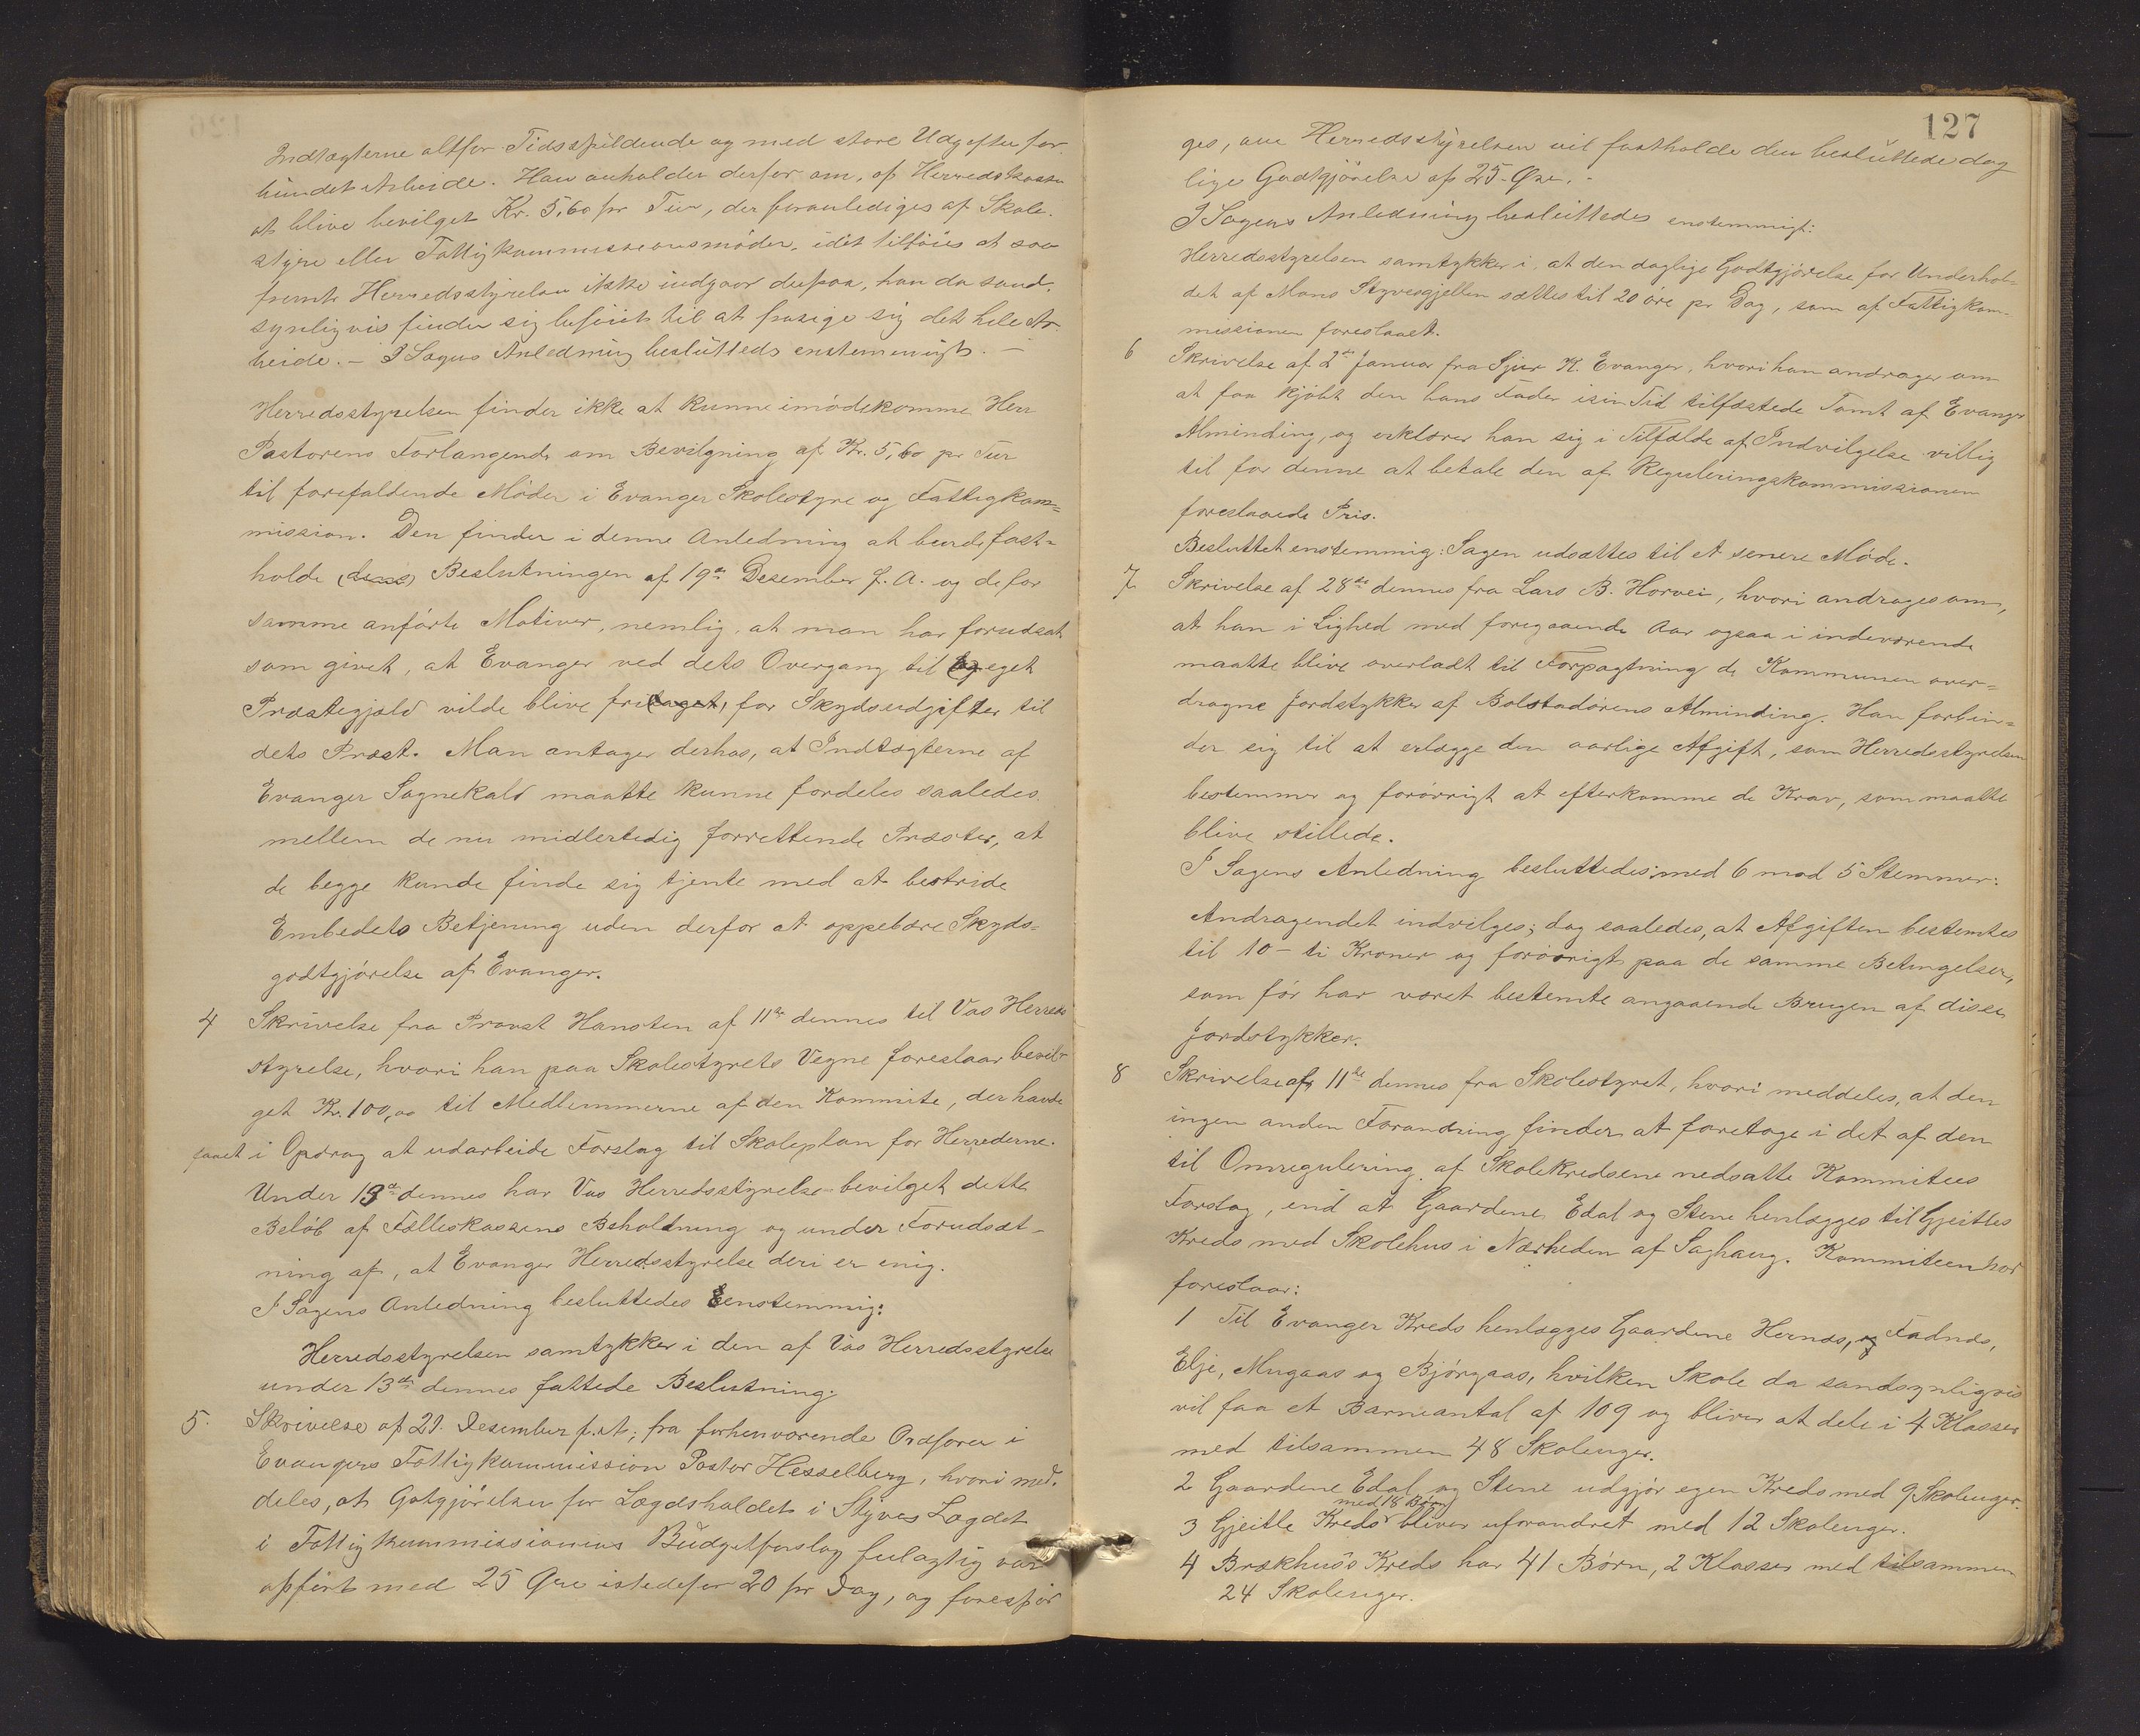 Indtægterne altfor Tidsspildende og med store Udgifter for-
bundet Arbeide. Han anholder derfor om, af Herredskassen
at blive bevilget Kr. 5,60 pr Tur, der foranlediges af Skole-
styre eller Fattigkommissionsmöder, idet tilföies at saa-
fremt Herredsstyrelsen ikke indgaar derpaa, han da sand-
synligvis finder sig beföiet til at frasige sig det hele Ar-
beide. – I Sagens Anledning besluttedes enstemmigt. –
Herredsstyrelsen finder ikke at kunne imödekomme Herr
Pastorens Forlangende om Bevilgning af Kr. 5,60 pr Tur
til forefaldende Möder i Evanger Skolestyre og Fattigkom=
mission. Den finder i denne Anledning at burde fast=
holde (dens) Beslutningen af 19de Desember f. A. og de for
samme anförte Motiver, nemlig, at man har forudsat
som givet, at Evanger ved dets Overgang til eget
Præstegjæld vilde blive fritaget, for Skydsudgifter til
dets Præst. Man antager derhos, at Indtægterne af
Evanger Sognekald maatte kunne fordeles saaledes
mellem de nu midlertidig forrettende Præster, at
de begge kunde finde sig tjente med at bestride
Embedets Betjening uden derfor at oppebære Skyds=
godtgjörelse af Evanger.
4 Skrivelse fra Provst Hansten af 11te dennes til Vos Herreds
styrelse, hvori han paa Skolestyrets Vegne foreslaar bevil-
get Kr. 100,00 til Medlemmerne af den Kommite, der havde
faaet i Opdrag at udarbeide Forslag til Skoleplan for Herrederne.
Under 13de dennes har Vos Herredsstyrelse bevilget dette
Belöb af Fælleskassens Beholdning og under Forudsæt-
ning af, at Evanger Herredsstyrelse deri er enig.
I Sagens Anledning besluttedes Eenstemmig:
Herredsstyrelsen samtykker i den af Vos Herredsstyrelse
under 13de dennes fattede Beslutning.
5. Skrivelse af 21. Desember f. A. fra forhenværende Ordforer i
Evangers Fattigkommission Pastor Hesselberg, hvori med-
deles, at Gotgjörelsen for Lægdsholdet i Styves Lægdet
i Fattigkommissionens Budgetforslag feilagtig var
opfört med 25 Öre istedefor 20 pr Dag, og forespör
127
ges, om Herredsstyrelsen vil fastholde den besluttede dag
lige Godtgjörelse af 25 Øre. –
I Sagens Anledning besluttedes enstemmigt:
Herredsstyrelsen samtykker i, at den daglige Godtgjörelse for Underhol=
det af Mons Styvesgjellen sættes til 20 öre pr Dag, som af Fattigkom-
missionen foreslaaet.
6 Skrivelse af 2de Januar fra Sjur K. Evanger, hvori han andrager om
at faa kjöbt den hans Fader i sin Tid tilfæstede Tomt af Evanger
Alminding, og erklærer han sig i Tilfælde af Indvilgelse villig
til for denne at betale den af Reguleringskommissionen
foreslaaede Pris.
Besluttet enstemmig: Sagen udsættes til et senere Möde.
7 Skrivelse af 28de dennes fra Lars B. Horvei, hvori andrages om,
at han i Lighed med foregaaende Aar ogsaa i indeværende
maatte blive overladt til Forpagtning de Kommunen over=
dragne Jordstykker af Bolstadörens Alminding. Han forbin=
der sig til at erlægge den aarlige Afgift, som Herredsstyrelsen
bestemmer og forövrigt at efterkomme de Krav, som maatte
blive stillede.
I Sagens Anledning besluttedes med 6 mod 5 Stemmer:
Andragendet indvilges; dog saaledes, at Afgiften bestemtes
til 10 – ti Kroner og forövrigt paa de samme Betingelser,
som för har været bestemte angaaende Brugen af disse
Jordstykker.
8 Skrivelse af 11te dennes fra Skolestyret, hvori meddeles, at den
ingen anden Forandring finder at foretage i det af den
til Omregulering af Skolekredsene nedsatte Kommitees
Forslag, end at Gaardene Edal og Stene henlægges til Gjeitles
Kreds med Skolehus i Nærheden af Saghaug. Kommiteen har
foreslaar:
1 Til Evanger Kreds henlægges Gaardene Hernæs, og Fadnæs,
Elje, Mugaas og Bjørgaas, hvilken Skole da sandsynligvis
vil faa et Barneantal af 109 og bliver at dele i 4 Klasser
med tilsammen 48 Skoleuger.
2 Gaardene Edal og Stene udgjör egen Kreds med 9 Skoleuger.
med 18 Börn
3 Gjeitle Kreds bliver uforandret med 12 Skoleuger.
4 Brækhus's Kreds har 41 Börn, 2 Klasser med tilsammen
24 Skoleuger.